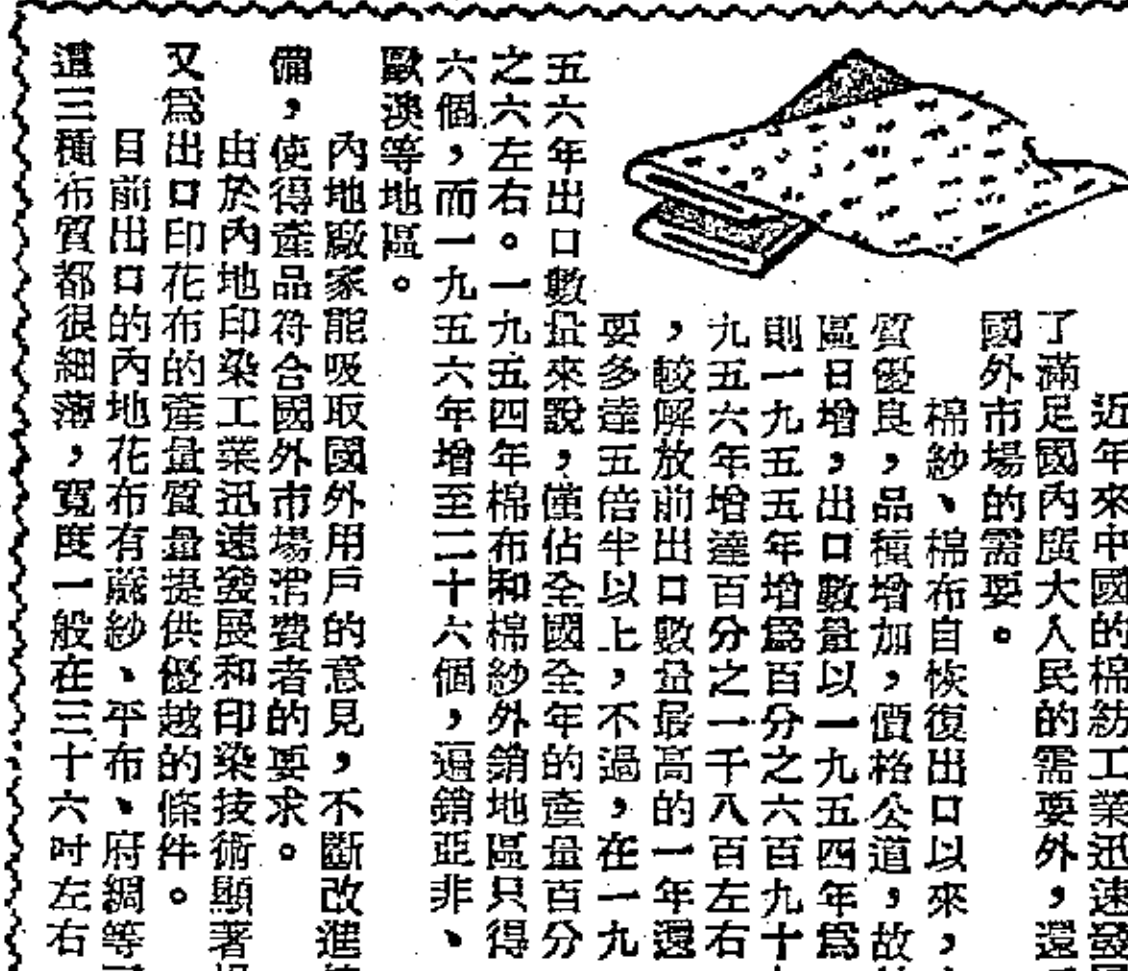 近年來中國的棉紡工業迅速發
了滿足國內廣大人民的需要外，還
國外市場的需要。
棉紗、棉布自恢復出口以來，
質優良，品種增加，價格公道，故
區日增，出口數量以一九五四年爲
則一九五五年增爲百分之六百九十
九五六年增達百分之一千八百左右
，較解放前出口數量最高的一年還
要多達五倍半以上，不過，在一九
五六年出口數量來說，僅佔全國全年的產量百分
之六左右。一九五四年棉布和棉紗外銷地區只得
六個，而一九五六年增至二十六個，遍銷亞非、
歐澳等地區。
內地廠家能吸取國外用戶的意見，不斷改進
備，使得產品符合國外市場消費者的要求。
由於內地印染工業迅速發展和印染技術顯著
又爲出口印花布的產量質量提供優越的條件。
目前出口的內地花布有蔴紗、平布、府綢等
這三種布質都很細薄，寬度一般在三十六吋左右